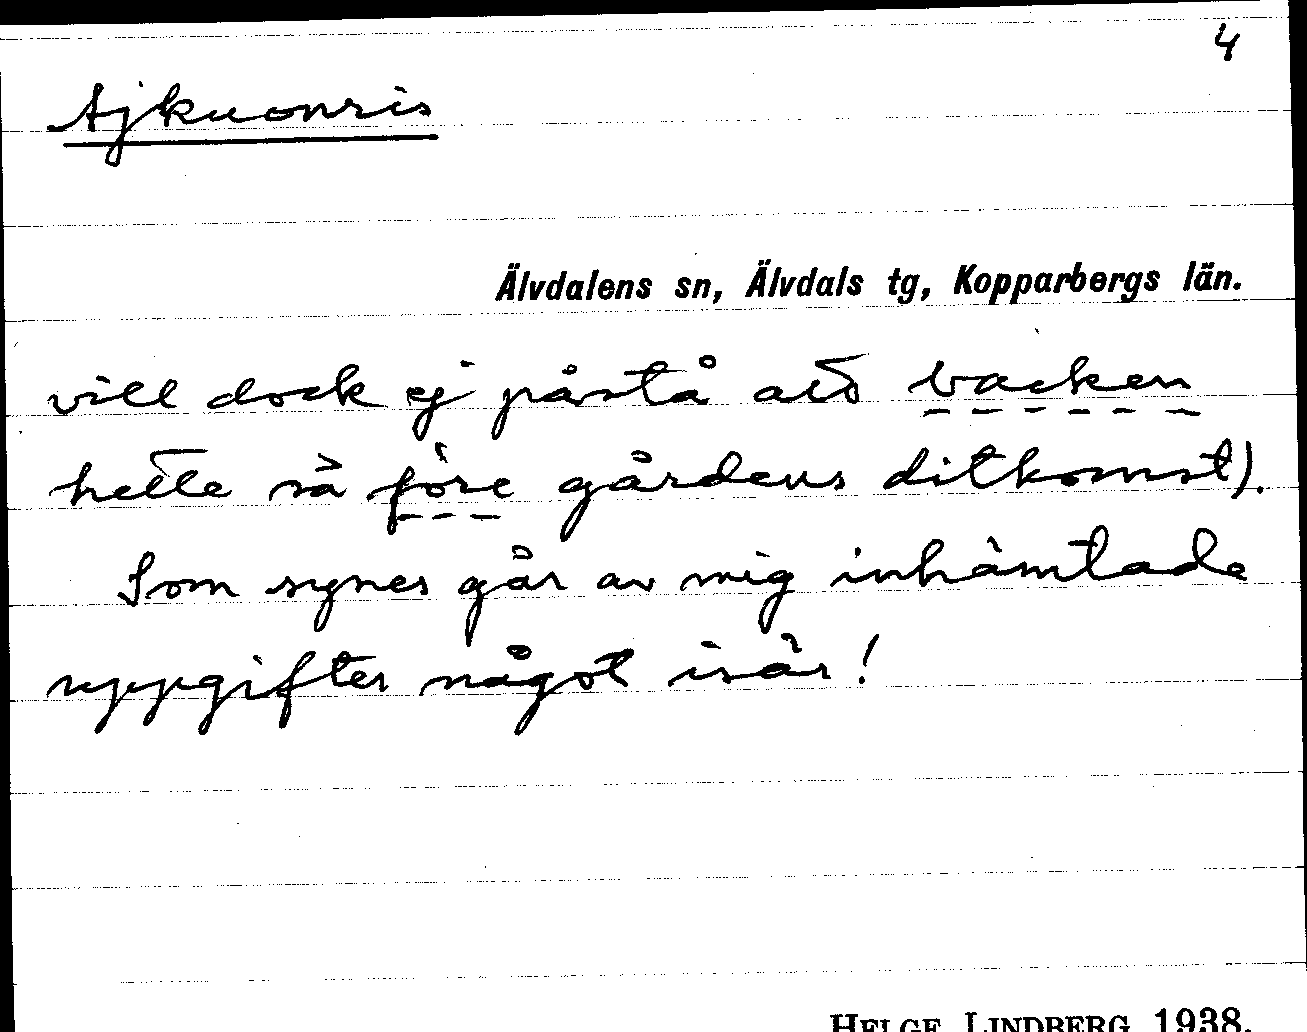 4
Ajkuonris
Älvdalens sn, Älvdals tg, Kopparbergs län.
vill dock ej påstå att backen
hette så före gårdens ditkomst).
Som synes går av mig inhämtade
uppgifter något isär!
HELGE LINDBERG 1938.